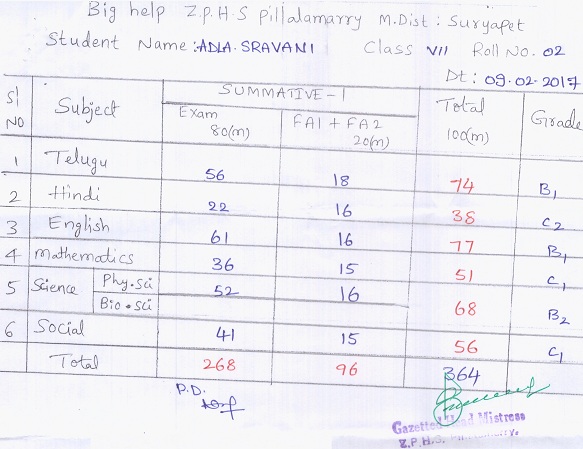 Big help Z.P.H.S Pillalamarry M.Dist : Suryapet
Student Name : ADLA. SRAVANI Class VII Roll No. 02
Dt : 09.02.2017
Sl NO Subject SUMMATIVE-I Total 100(m) Grade
Exam 80(m) FA1 + FA2 20(m)
1 Telugu 56 18 74 B1
2 Hindi 22 16 38 C2
3 English 61 16 77 B1
4 Mathematics 36 15 51 C1
5 Science Phy.Sci 52 16 68 B2
Bio.Sci
6 Social 41 15 56 C1
Total 268 96 364
P.D.
Gazetted Head Mistress
Z.P.H.S.